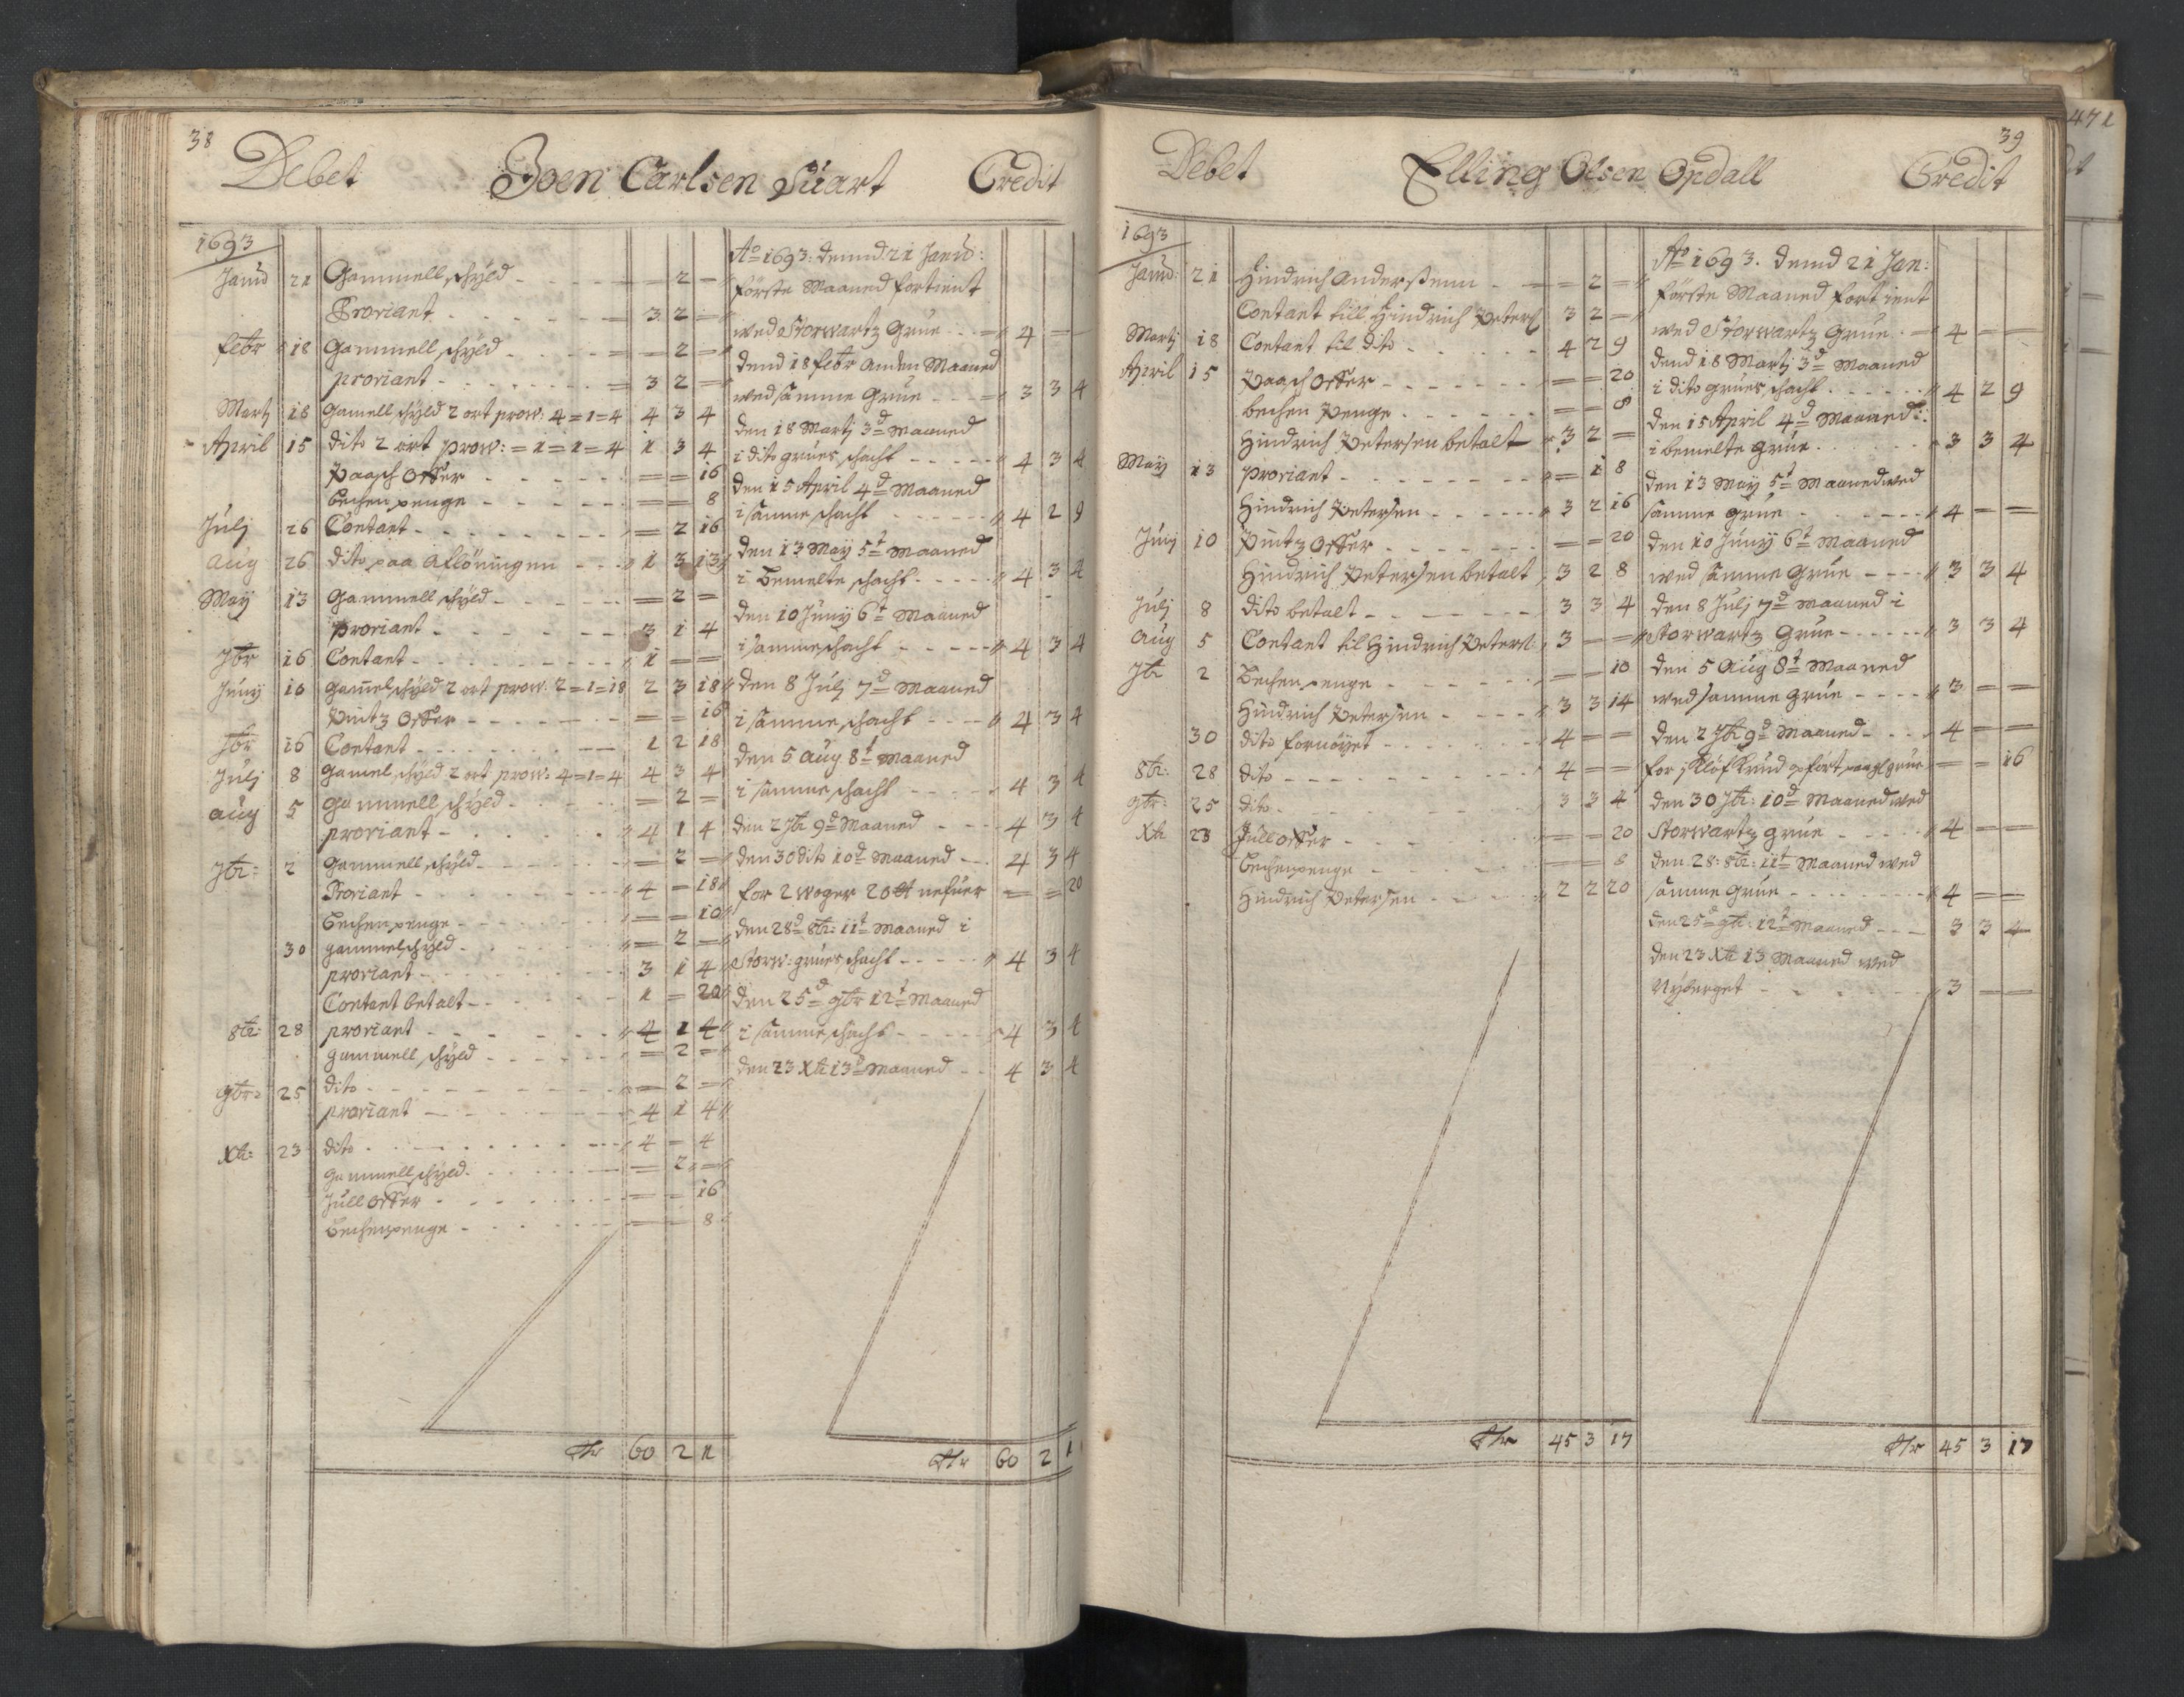 38
Debet Joen Carlsen Suart Credit
1693
Janu 21 Gammell schyld - - - = 2 =
Proviant - - - - 3 2 =
febr 18 Gammell schyld - - - = 2 =
proviant - - - - 3 2 =
Martj 18 Gamell schyld 2 ort prow: 4=1=4 4 3 4
April 15 dito 2 ort prow: =1=1=4 1 3 4
Paasch offer - - - = = 16
bechen penge - - - = = 8
Julj 26 Contant - - - = 2 16
Aug 26 dito paa Aflöningen - - - 1 3 13
May 13 Gammell schyld - - - = 2 =
proviant - - - 3 1 4
7br 16 Contant - - - 1 = =
Juny 10 gamel schyld 2 ort prow: 2=1=18 2 3 18
Pintz offer - - - = = 16
7br 16 Contant - - - 1 2 18
Julj 8 Gamel schyld 2 ort prow: 4=1=4 4 3 4
Aug 5 gammell schyld - - - = 2 =
proviant - - - 4 1 4
7br: 2 gammell schyld - - - = 2 =
Proviant - - - 4 = 18
bechen penge - - - = = 10
30 gammel schyld - - - = 2 =
proviant - - - 3 1 4
Contant betalt - - - 1 = 20
8br: 28 proviant - - - 4 1 4
gammell schyld - - - = 2 =
9br: 25 dito - - - = 2 =
proviant - - - 4 1 4
Xbr: 23 dito - - - 4 = 4
gammell schyld - - - = 2 =
Jull offer - - - = = 16
bechenpenge - - - = = 8
Rdr 60 2 1
Ao 1693: dennd 21 Janu:
förste Maaned fortient
wed Storwartz Grue - - - 4 = =
dend 18 febr anden Maaned
wed samme Grue - - - 3 3 4
den 18 Martj 3d Maaned
i dito grues schacht - - - 4 3 4
den 15 April 4d Maaned
i samme schacht - - - 4 2 9
den 13 May 5t Maaned
i bemelte schacht - - - 4 3 4
den 10 Juny 6t Maaned
i samme schacht - - - 4 3 4
den 8 Julj 7d Maaned
i samme schacht - - - 4 3 4
den 5 Aug 8t Maaned
i samme schacht - - - 4 3 4
den 2 7br 9d Maaned - - - 4 3 4
den 30 dito 10d Maaned - - - 4 3 4
for 2 woger 20 tt nefuer = = 20
den 28d 8br: 11t Maaned i
Storw: grues schacht - - - 4 3 4
den 25d 9br 12t Maaned
i samme schacht - - - 4 3 4
den 23 Xbr 13d Maaned - - 4 3 4
Rdr 60 2 1
39
Debet Elling Olsen Opdall Credit
1693
Janu: 21 Hindrich Anderssenn - - = 2 =
Contant till Hindrich Peters 3 2 =
Martj 18 Contant til dito - - - 4 2 9
April 15 Paasch offer - - - = = 20
bechen Penge - - - = = 8
Hindrich Petersen betalt 3 2 =
May 13 proviant - - - = 1 8
Hindrich Petersen - - - 3 2 16
Juny 10 Pintz offer - - - = = 20
Hindrich Petersen betalt 3 2 8
Julj 8 dito betalt - - - 3 3 4
Aug 5 Contant til Hindrich Peters: 3 = =
7br 2 Bechen penge - - - = = 10
Hindrich Petersen - - - 3 3 14
30 dito fornöyet - - - 4 = =
8br: 28 dito - - - 4 = =
9br: 25 dito - - - 3 3 4
Xbr 23 Jull offer - - - = = 20
bechenpenge - - - = = 8
Hindrich Petersen - - - 2 2 20
Rdr 45 3 17
Ao 1693. dennd 21 Jan:
förste Maaned fortient
wed Storwartz Grue - 4 = =
dend 18 Martj 3d Maaned
i dito grues schacht - - - 4 2 9
den 15 April 4d Maaned:
i bemelte grue - - - 3 3 4
den 13 May 5t Maaned wed
samme grue - - - 4 = =
den 10 Juny 6t Maaned
wed samme Grue - - - 3 3 4
den 8 Julj 7d Maaned i
Storwartz Grue - - - 3 3 4
den 5 Aug 8t Maaned
wed samme grue - - - 3 = =
den 2 7br 9d Maaned - - - 4 = =
for = = 16
den 30 7br: 10d Maaned wed
Storwartz grue - - - 4 = =
den 28: 8br: 11t Maaned wed
samme Grue - - - 4 = =
den 25d 9br: 12t Maaned - - - 3 3 4
den 23 Xbr 13 Maaned wed
Nyberget - - - 3 = =
Rdr 45 3 17
471